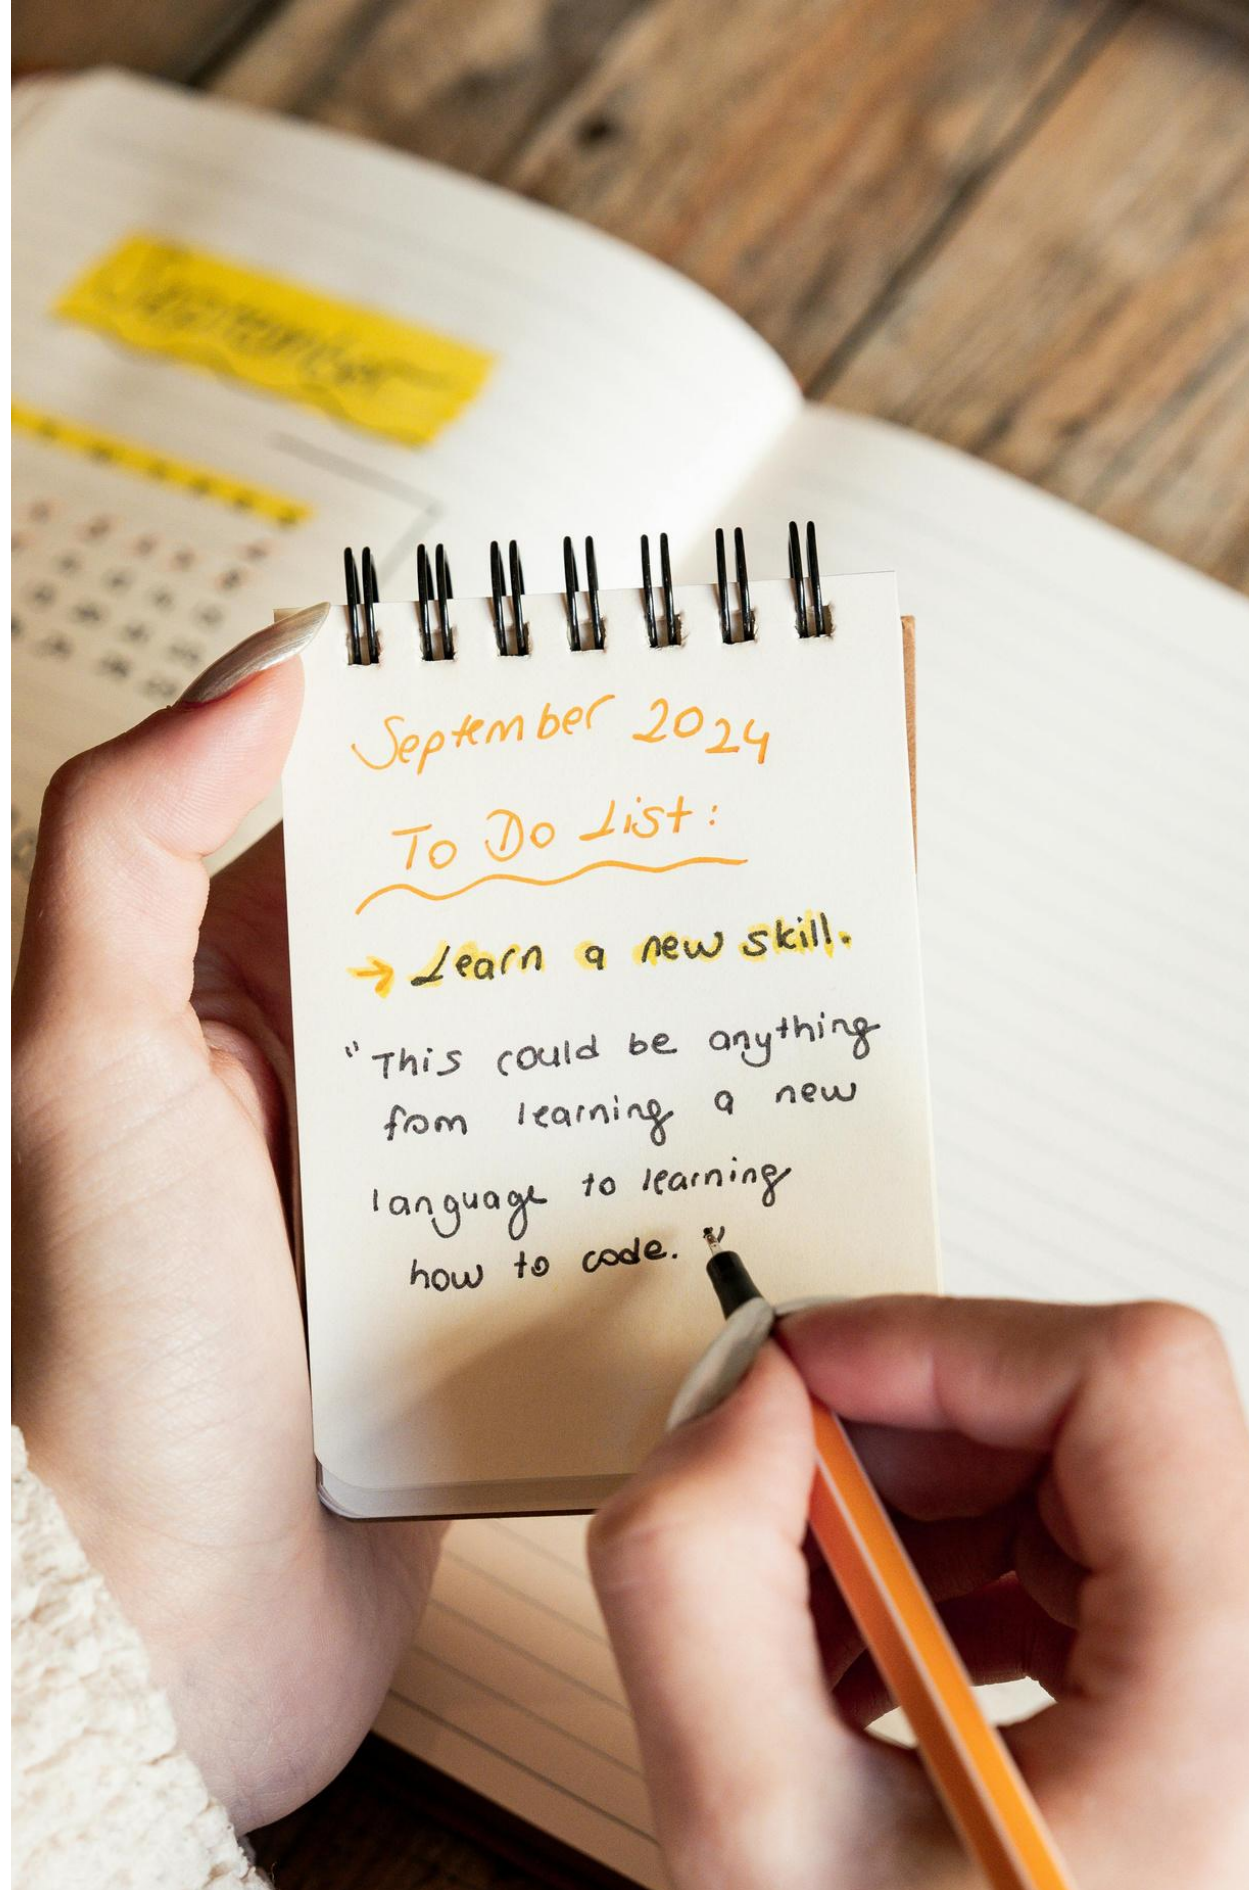 September
September 2024
To Do List:
→ Learn a new skill.
"This could be anything
from learning a new
language to learning
how to code."